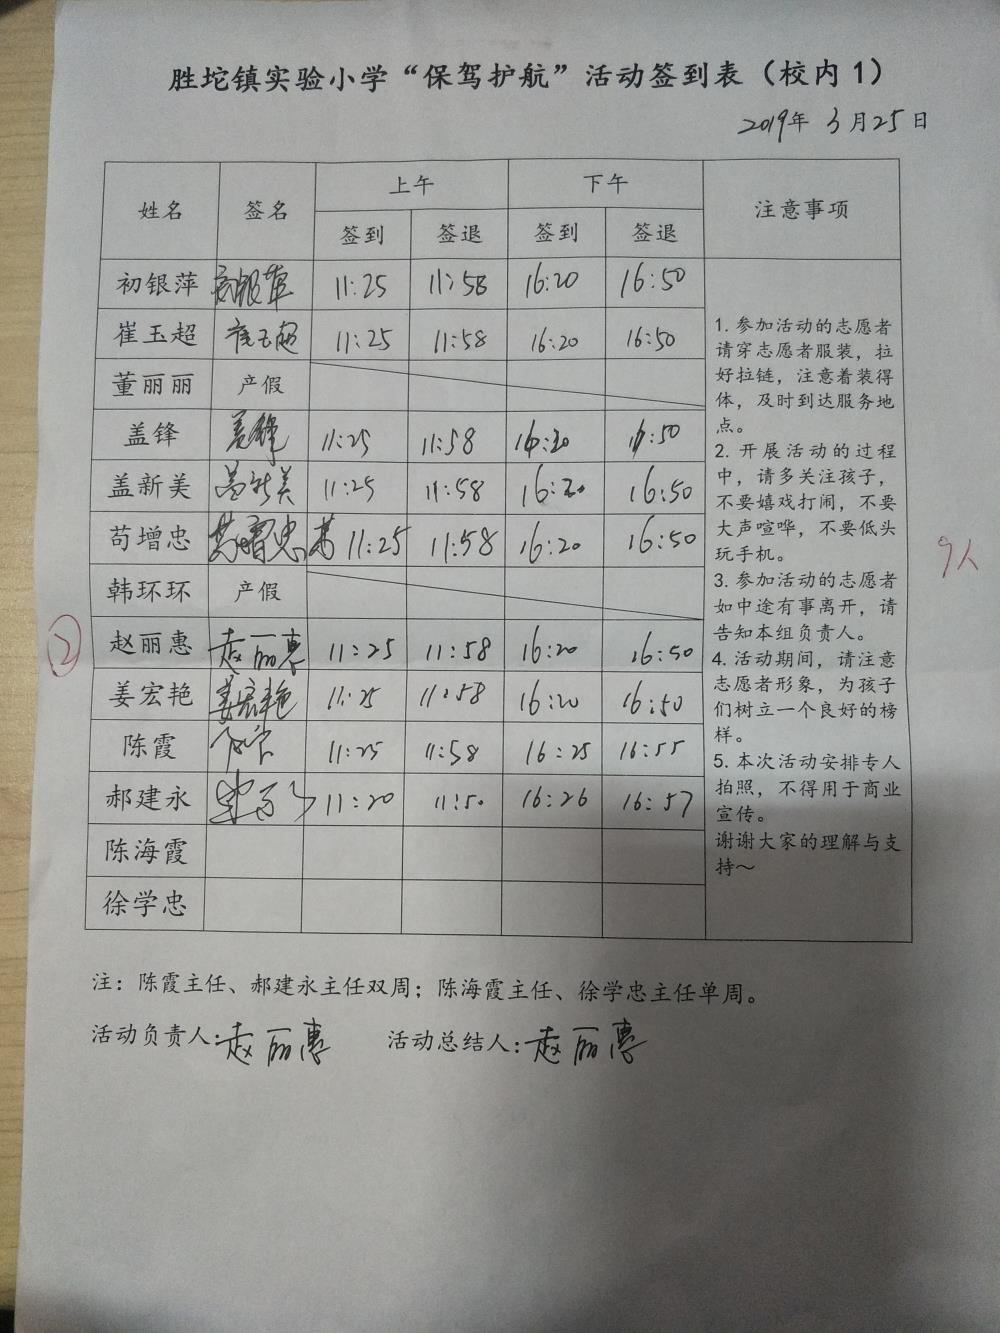 胜坨镇实验小学“保驾护航”活动签到表（校内1）
2019年 3月25日
姓名 签名 上午 下午 注意事项
签到 签退 签到 签退
初银萍 初银萍 11:25 11:58 16:20 16:50
崔玉超 崔玉超 11:25 11:58 16:20 16:50
董丽丽 产假
盖锋 盖锋 11:25 11:58 16:20 16:50
盖新美 盖新美 11:25 11:58 16:20 16:50
苟增忠 苟增忠 11:25 11:58 16:20 16:50
韩环环 产假
赵丽惠 赵丽惠 11:25 11:58 16:20 16:50
姜宏艳 姜宏艳 11:25 11:58 16:20 16:50
陈霞 11:25 11:58 16:25 16:55
郝建永 11:20 11:50 16:26 16:57
陈海霞
徐学忠
1. 参加活动的志愿者
请穿志愿者服装，拉
好拉链，注意着装得
体，及时到达服务地
点。
2. 开展活动的过程
中，请多关注孩子，
不要嬉戏打闹，不要
大声喧哗，不要低头
玩手机。
3. 参加活动的志愿者
如中途有事离开，请
告知本组负责人。
4. 活动期间，请注意
志愿者形象，为孩子
们树立一个良好的榜
样。
5. 本次活动安排专人
拍照，不得用于商业
宣传。
谢谢大家的理解与支
持～
②
9人
注：陈霞主任、郝建永主任双周；陈海霞主任、徐学忠主任单周。
活动负责人：赵丽惠 活动总结人：赵丽惠